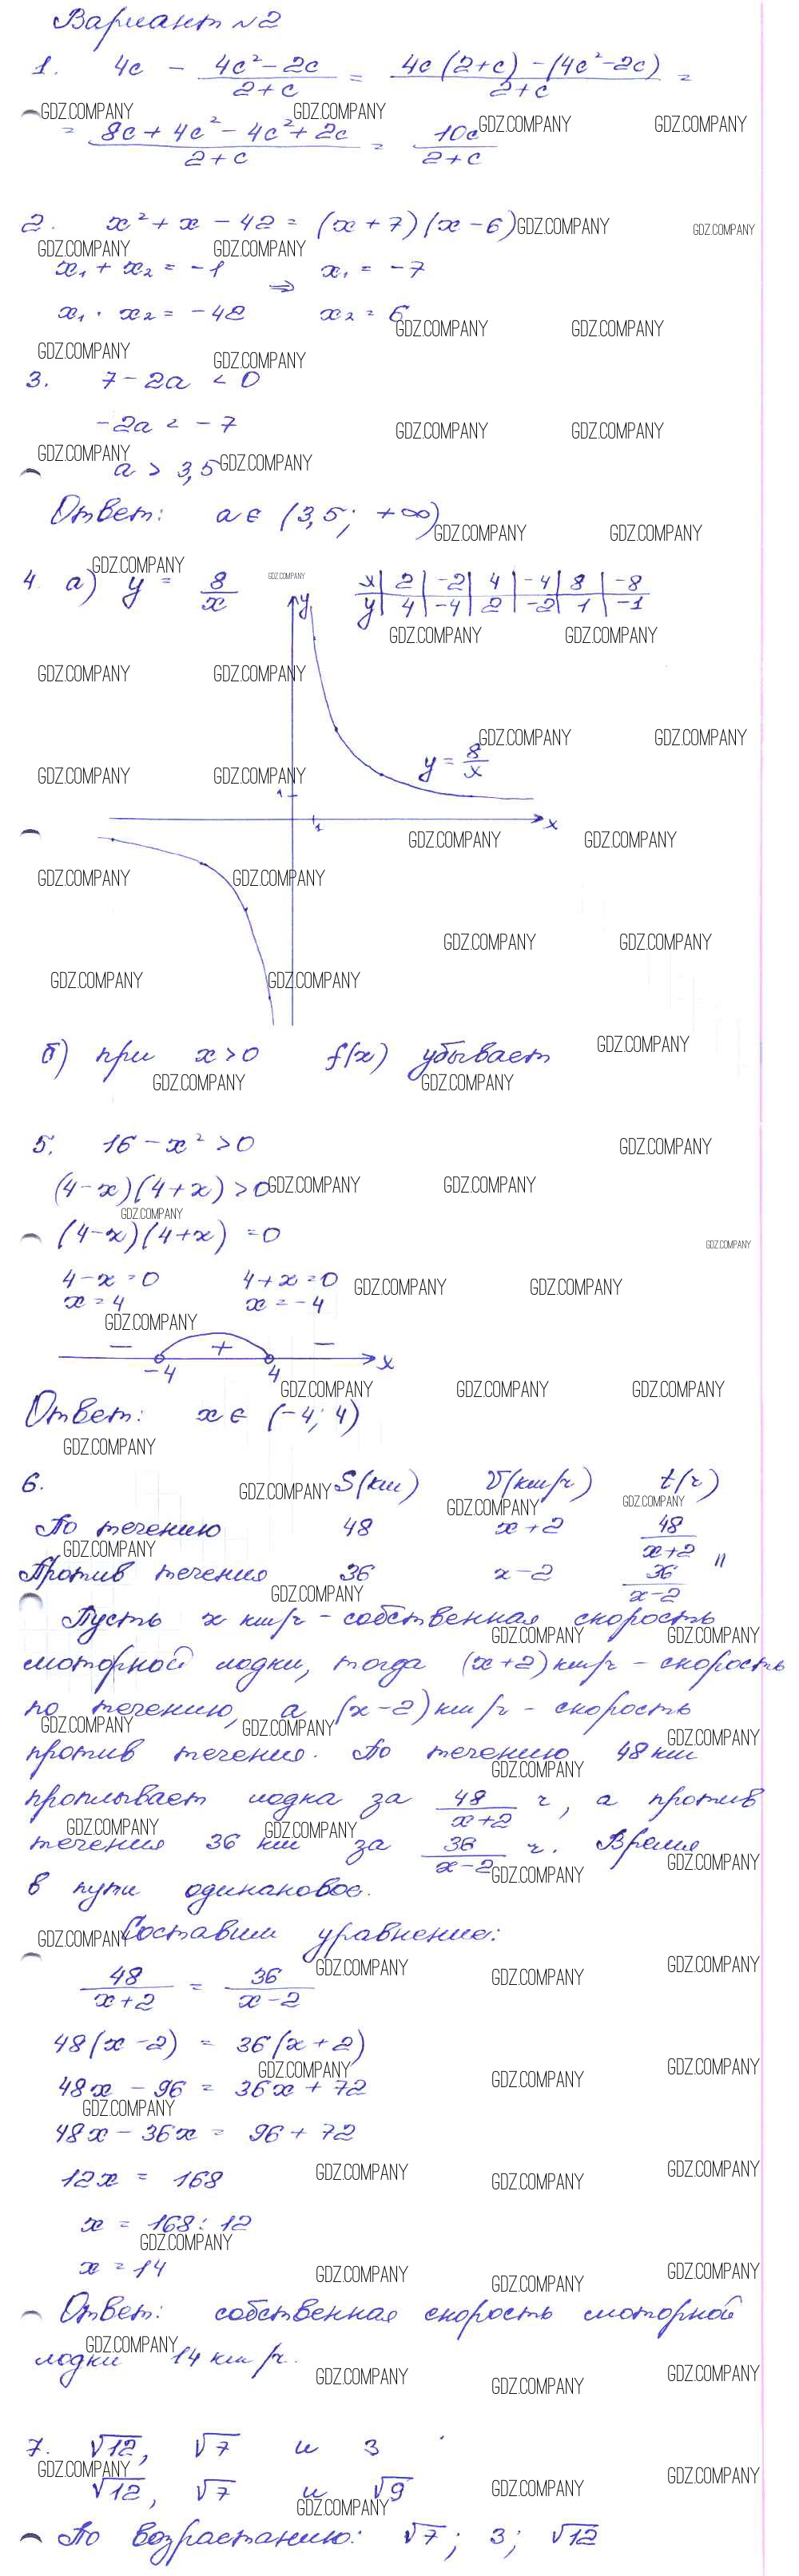 Вариант №2
1. 4c - (4c² - 2c)/(2+c) = (4c(2+c) - (4c² - 2c))/(2+c) =
= (8c + 4c² - 4c² + 2c)/(2+c) = 10c/(2+c)
2. x² + x - 42 = (x+7)(x-6)
x₁ + x₂ = -1 ⇒ x₁ = -7
x₁ · x₂ = -42 x₂ = 6
3. 7 - 2a < 0
-2a < -7
a > 3,5
Ответ: a ∈ (3,5; +∞)
4. а) y = 8/x
x | 2 | -2 | 4 | -4 | 8 | -8
y | 4 | -4 | 2 | -2 | 1 | -1
y
y = 8/x
1
1 x
б) при x > 0 f(x) убывает
5. 16 - x² > 0
(4-x)(4+x) > 0
(4-x)(4+x) = 0
4-x = 0 4+x = 0
x = 4 x = -4
- + -
-4 4 x
Ответ: x ∈ (-4; 4)
6. S(км) V(км/ч) t(ч)
По течению 48 x+2 48/(x+2)
Против течения 36 x-2 36/(x-2) "
Пусть x км/ч - собственная скорость
моторной лодки, тогда (x+2) км/ч - скорость
по течению, а (x-2) км/ч - скорость
против течения. По течению 48 км
проплывает лодка за 48/(x+2) ч, а против
течения 36 км за 36/(x-2) ч. Время
в пути одинаковое.
Составим уравнение:
48/(x+2) = 36/(x-2)
48(x-2) = 36(x+2)
48x - 96 = 36x + 72
48x - 36x = 96 + 72
12x = 168
x = 168 : 12
x = 14
Ответ: собственная скорость моторной
лодки 14 км/ч.
7. √12, √7 и 3
√12, √7 и √9
По возрастанию: √7; 3; √12
GDZ.COMPANY